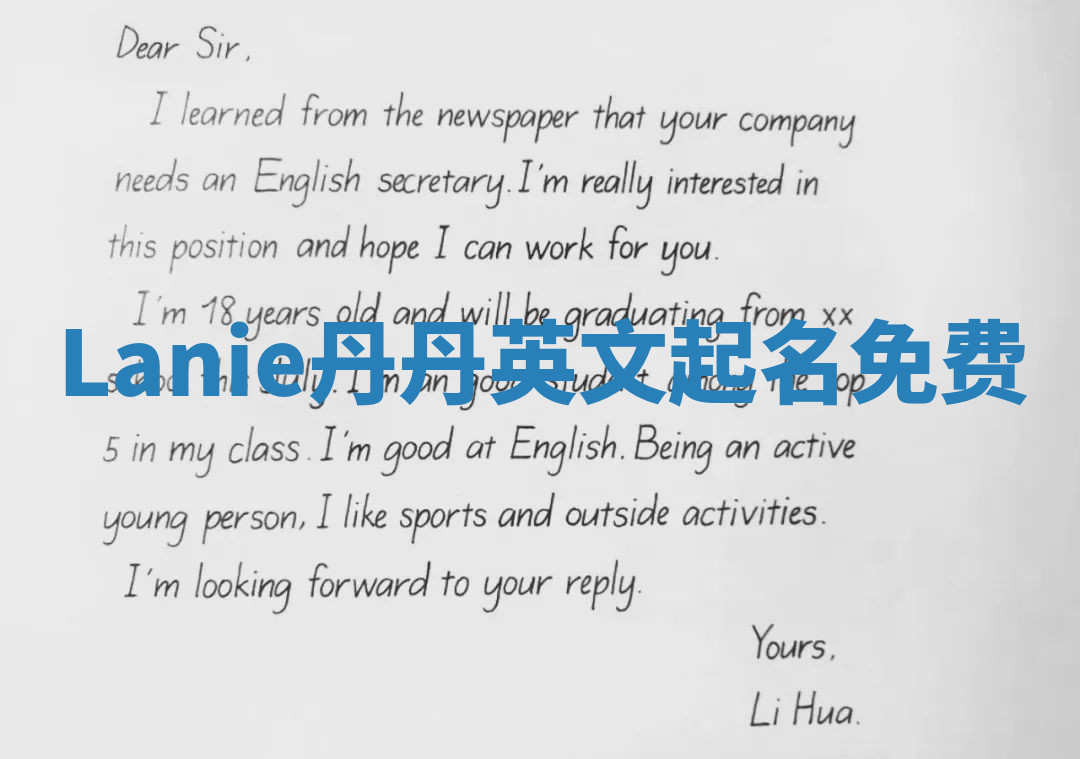 Dear Sir,
I learned from the newspaper that your company
needs an English secretary. I'm really interested in
this position and hope I can work for you.
I'm 18 years old and will be graduating from xx
Lanie丹丹英文起名免费
school this July. I'm an good student among the top
5 in my class. I'm good at English. Being an active
young person, I like sports and outside activities.
I'm looking forward to your reply.
Yours,
Li Hua.